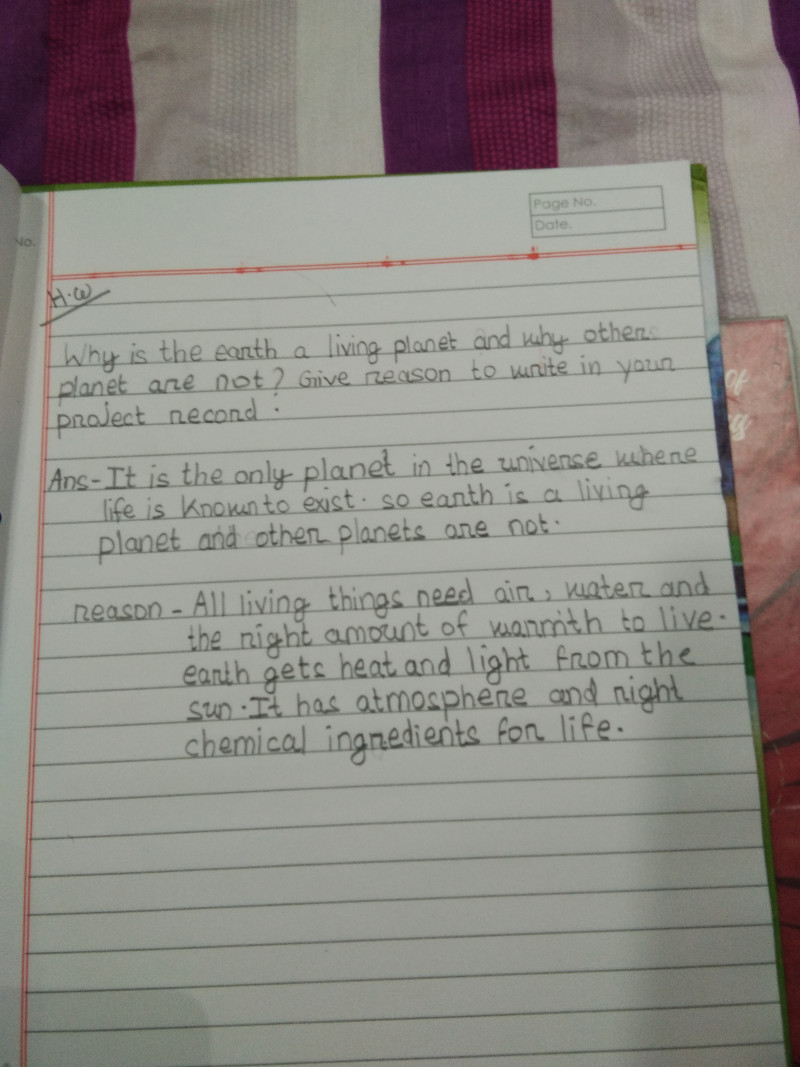 No.
Page No.
Date.
H.W
Why is the earth a living planet and why other
planet are not? Give reason to write in your
project record.
Ans-It is the only planet in the universe where
life is known to exist. so earth is a living
planet and other planets are not.
reason - All living things need air, water and
the right amount of warmth to live.
earth gets heat and light from the
sun. It has atmosphere and right
chemical ingredients for life.
of